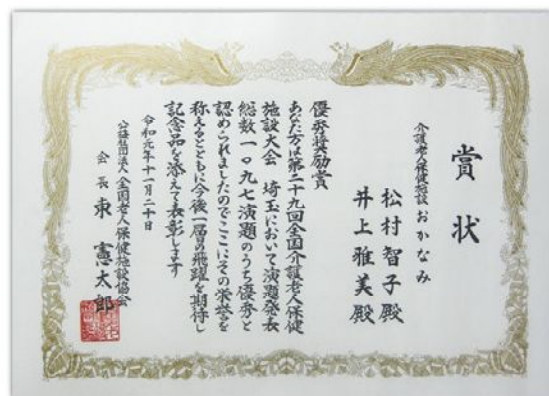 賞状
介護老人保健施設おかなみ
松村智子殿
井上雅美殿
優秀奨励賞
あなた方は第二十九回全国介護老人保健
施設大会 埼玉において演題発表
総数一〇九七演題のうち優秀と
認められましたのでここにその栄誉を
称えるとともに今後一層の飛躍を期待し
記念品を添えて表彰します
令和元年十一月二十日
公益社団法人全国老人保健施設協会
会長 東憲太郎